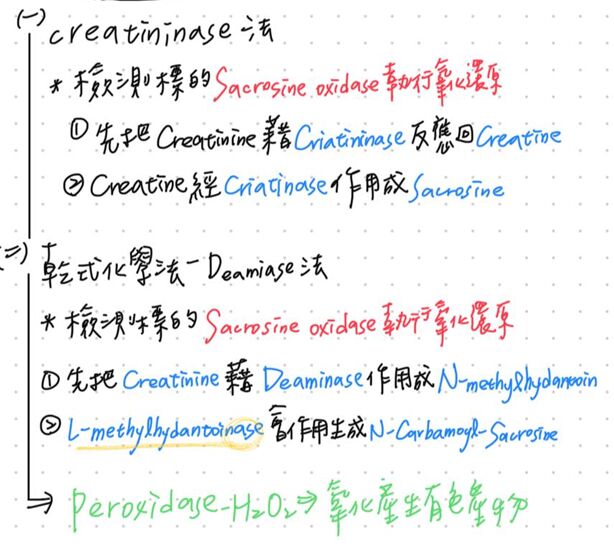 (一) creatininase 法
* 檢測標的 Sacrosine oxidase 執行氧化還原
① 先把 Creatinine 藉 Criatininase 反應回 Creatine
② Creatine 經 Criatinase 作用成 Sacrosine
(二) 乾式化學法 - Deamiase 法
* 檢測標的 Sacrosine oxidase 執行氧化還原
① 先把 Creatinine 藉 Deaminase 作用成 N-methylhydantoin
② L-methylhydantoinase 會作用生成 N-Carbamoyl-Sacrosine
→ peroxidase-H₂O₂ ⇒ 氧化產生有色產物